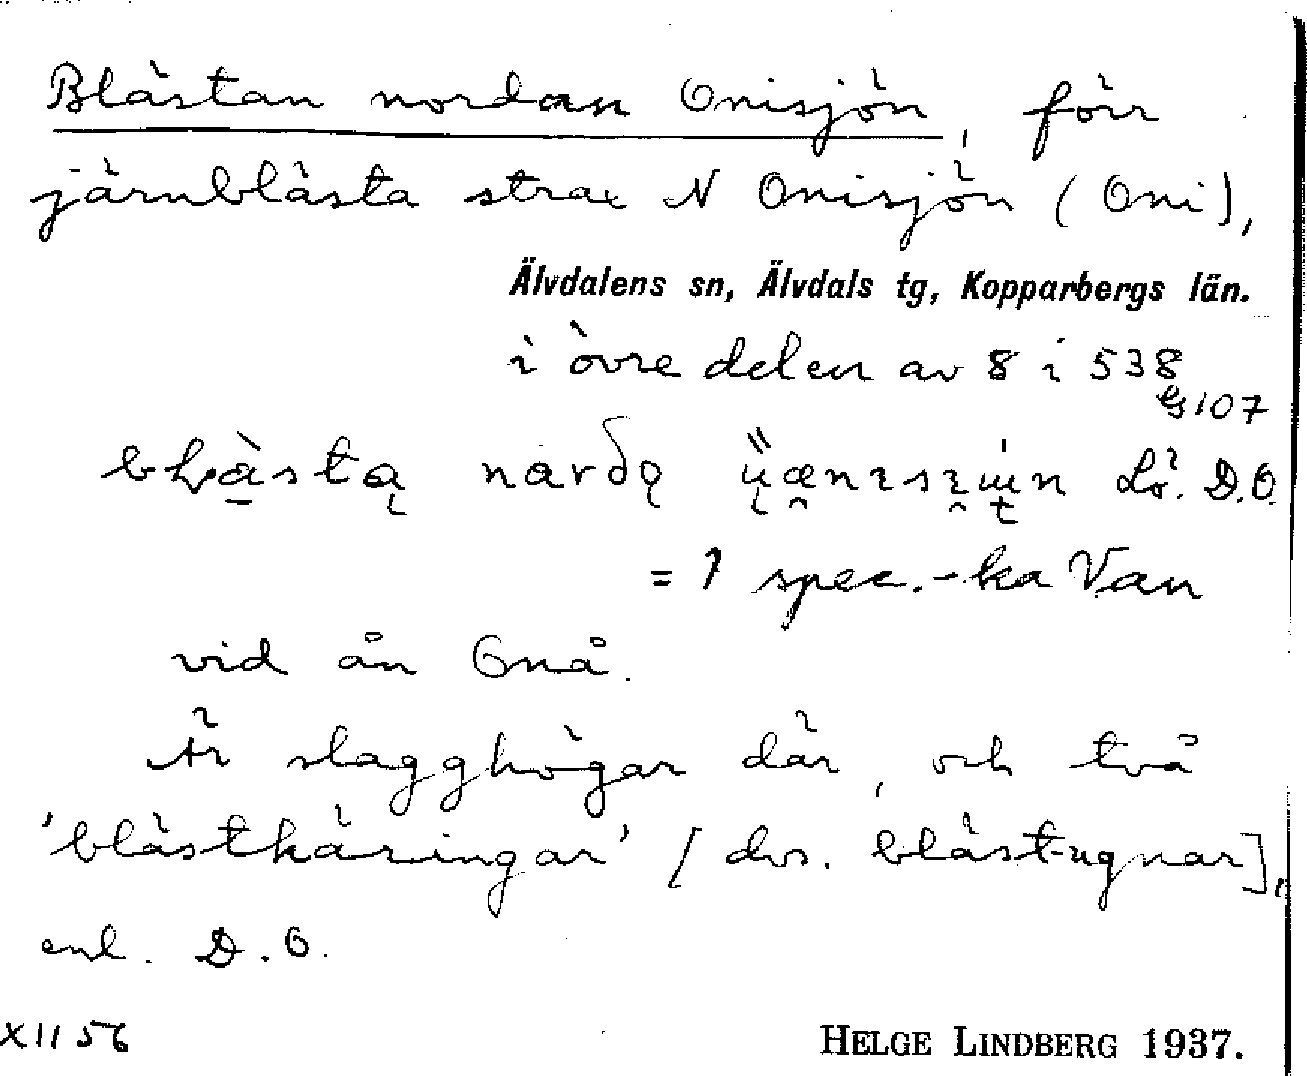 Blästan nordan Onisjön, förr
järnblästa strax N Onisjön (Oni),
Älvdalens sn, Älvdals tg, Kopparbergs län.
i övre delen av 8 i 538
G 107
D.O.
= 1 spec.-ka Van
vid ån Gnå.
Är slagghögar där, och två
'blästkäringar' [dvs. bläst-ugnar],
enl. D.O.
XII 56
HELGE LINDBERG 1937.